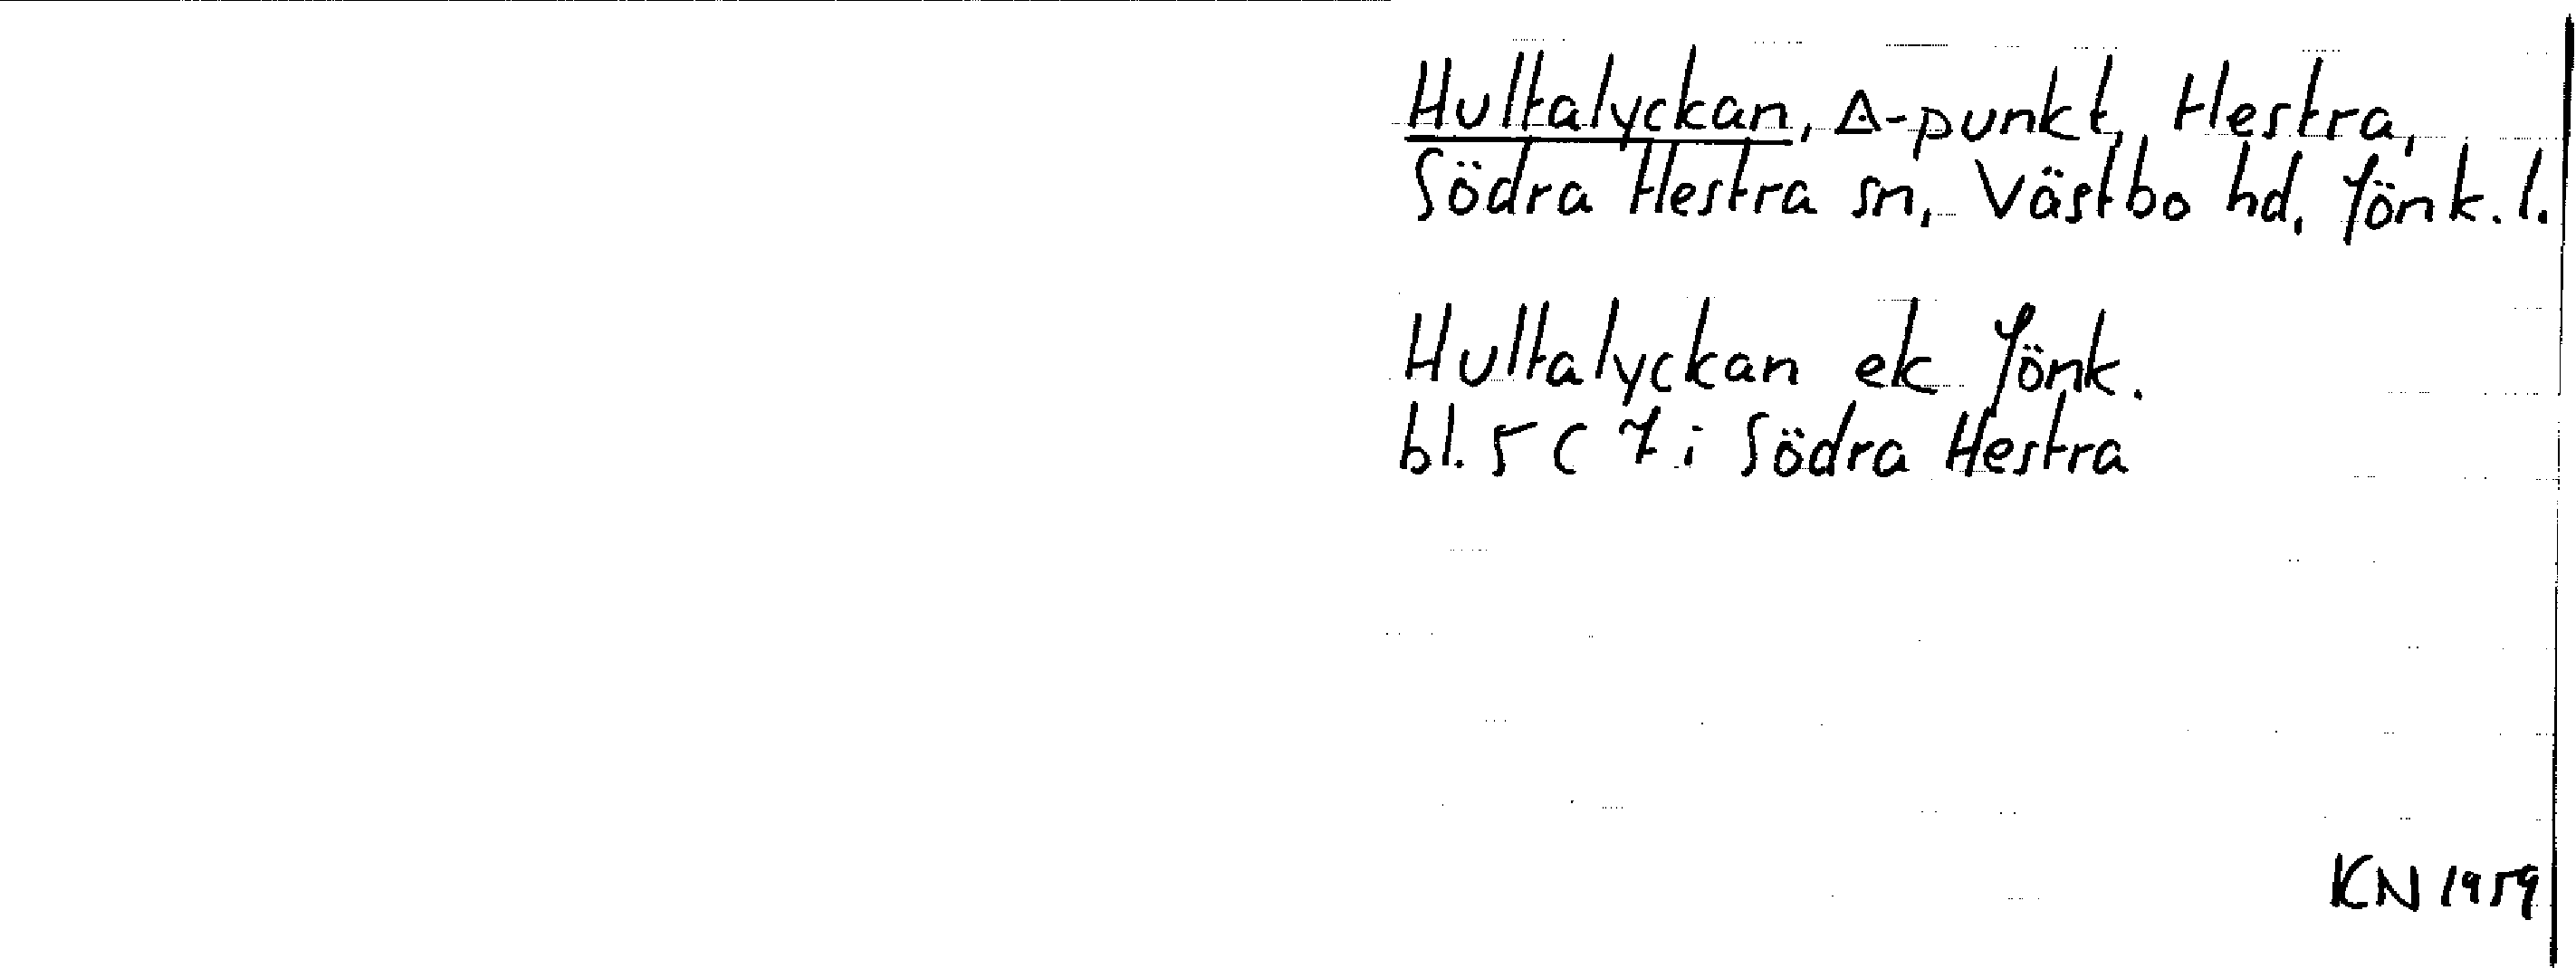 Hultalyckan, △-punkt, Hestra,
Södra Hestra sn, Västbo hd, Jönk. l.
Hultalyckan ek Jönk.
bl. 5 C 7 i Södra Hestra
KN 1959